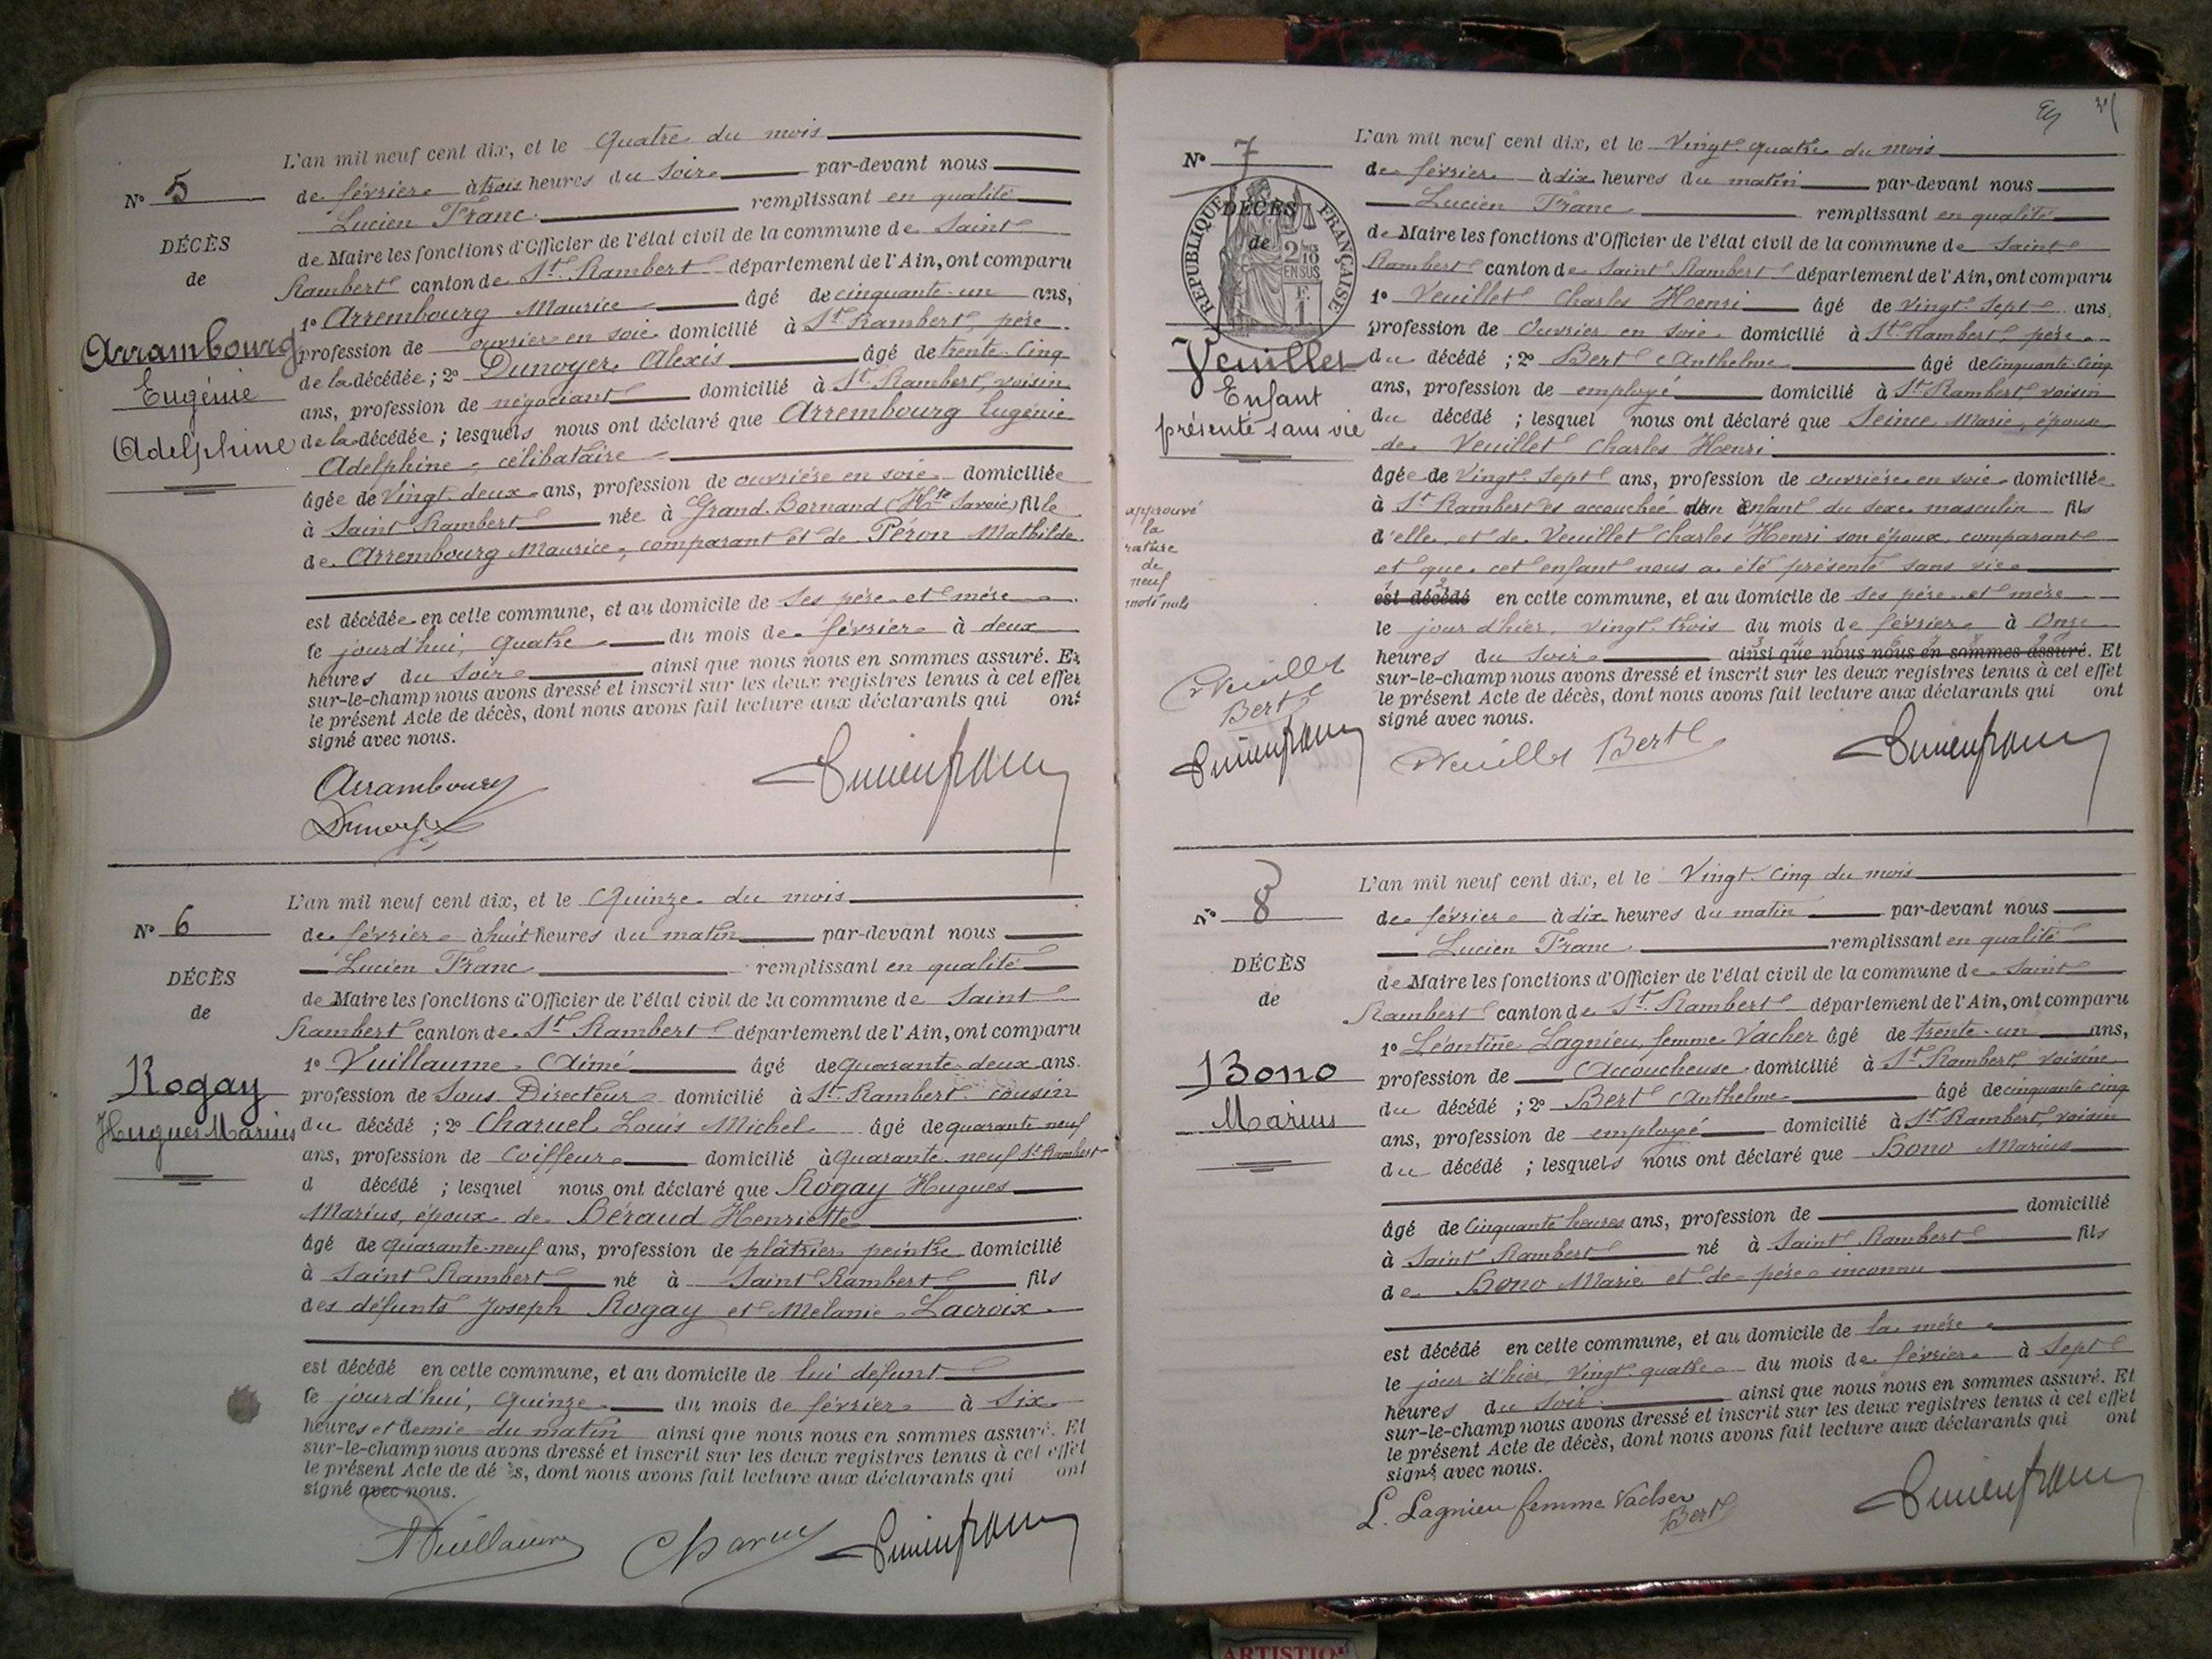 N° 5
DÉCÈS
de
Arrambourg
Eugénie
Adelphine
L'an mil neuf cent dix, et le Quatre du mois
de février à trois heures du soir par-devant nous
Lucien Franc remplissant en qualité
de Maire les fonctions d'Officier de l'état civil de la commune de Saint
Rambert canton de St. Rambert département de l'Ain, ont comparu
1° Arrembourg Maurice âgé de cinquante-un ans,
profession de ouvrier en soie domicilié à St. Rambert, père
de la décédée ; 2° Dunoyer Alexis âgé de trente-cinq
ans, profession de négociant domicilié à St. Rambert, voisin
de la décédée ; lesquels nous ont déclaré que Arrembourg Eugénie
Adelphine, célibataire
âgée de vingt-deux ans, profession de ouvrière en soie domiciliée
à Saint Rambert née à Grand-Bornand (Hte Savoie) fille
de Arrembourg Maurice, comparant et de Péron Mathilde
est décédée en cette commune, et au domicile de ses père et mère
le jourd'hui, quatre du mois de février à deux
heures du soir ainsi que nous nous en sommes assuré. Et
sur-le-champ nous avons dressé et inscrit sur les deux registres tenus à cet effet
le présent Acte de décès, dont nous avons fait lecture aux déclarants qui ont
signé avec nous.
Arrambourg
Dunoyer
Lucien franc
N° 6
DÉCÈS
de
Rogay
Hugues Marius
L'an mil neuf cent dix, et le Quinze du mois
de février à huit heures du matin par-devant nous
Lucien Franc remplissant en qualité
de Maire les fonctions d'Officier de l'état civil de la commune de Saint
Rambert canton de St. Rambert département de l'Ain, ont comparu
1° Vuillaume Aimé âgé de quarante-deux ans.
profession de Sous Directeur domicilié à St. Rambert cousin
du décédé ; 2° Charuel Louis Michel âgé de quarante neuf
ans, profession de Coiffeur domicilié à quarante-neuf St Rambert
d décédé ; lesquel nous ont déclaré que Rogay Hugues
Marius, époux de Béraud Henriette
âgé de quarante-neuf ans, profession de plâtrier peintre domicilié
à Saint Rambert né à Saint Rambert fils
des défunts Joseph Rogay et Mélanie Lacroix
est décédé en cette commune, et au domicile de lui défunt
le jourd'hui, quinze du mois de février à six
heures et demie du matin ainsi que nous nous en sommes assuré. Et
sur-le-champ nous avons dressé et inscrit sur les deux registres tenus à cet effet
le présent Acte de dé s, dont nous avons fait lecture aux déclarants qui ont
signé avec nous.
AVuillaume Charuel Lucien franc
N° 7
RÉPUBLIQUE FRANÇAISE
2/10 EN SUS
F. 1
DÉCÈS
de
Veuillet
Enfant
présenté sans vie
approuvé
la
rature
de
neuf
mots nuls
Veuillet
Bert
Lucien franc
L'an mil neuf cent dix, et le Vingt-quatre du mois
de février à dix heures du matin par-devant nous
Lucien Franc remplissant en qualité
de Maire les fonctions d'Officier de l'état civil de la commune de Saint
Rambert canton de Saint Rambert département de l'Ain, ont comparu
1° Veuillet Charles Henri âgé de vingt-sept ans,
profession de Ouvrier en soie domicilié à St. Rambert, père
du décédé ; 2° Bert Anthelme âgé de cinquante-cinq
ans, profession de employé domicilié à St. Rambert, voisin
du décédé ; lesquel nous ont déclaré que Seince Marie, épouse
de Veuillet Charles Henri
âgée de vingt-sept ans, profession de ouvrière en soie domiciliée
à St. Rambert es accouchée d'un enfant du sexe masculin fils
d'elle et de Veuillet Charles Henri son époux comparant
et que cet enfant nous a été présenté sans vie
est décédé en cette commune, et au domicile de ses père et mère
le jour d'hier, vingt-trois du mois de février à Onze
heures du soir ainsi que nous nous en sommes assuré. Et
sur-le-champ nous avons dressé et inscrit sur les deux registres tenus à cet effet
le présent Acte de décès, dont nous avons fait lecture aux déclarants qui ont
signé avec nous.
Veuillet Bert Lucien franc
N° 8
DÉCÈS
de
Bono
Marius
L'an mil neuf cent dix, et le Vingt-cinq du mois
de février à dix heures du matin par-devant nous
Lucien Franc remplissant en qualité
de Maire les fonctions d'Officier de l'état civil de la commune de Saint
Rambert canton de St. Rambert département de l'Ain, ont comparu
1° Léontine Lagnieu, femme Vacher âgé de trente-un ans,
profession de Accoucheuse domicilié à St. Rambert, voisine
du décédé ; 2° Bert Anthelme âgé de cinquante-cinq
ans, profession de employé domicilié à St. Rambert, voisin
du décédé ; lesquels nous ont déclaré que Bono Marius
âgé de Cinquante heures ans, profession de domicilié
à Saint Rambert né à Saint Rambert fils
de Bono Marie et de père inconnu
est décédé en cette commune, et au domicile de la mère
le jour d'hier, Vingt-quatre du mois de février à Sept
heures du soir ainsi que nous nous en sommes assuré. Et
sur-le-champ nous avons dressé et inscrit sur les deux registres tenus à cet effet
le présent Acte de décès, dont nous avons fait lecture aux déclarants qui ont
signé avec nous.
L. Lagnieu femme Vacher
Bert
Lucien franc